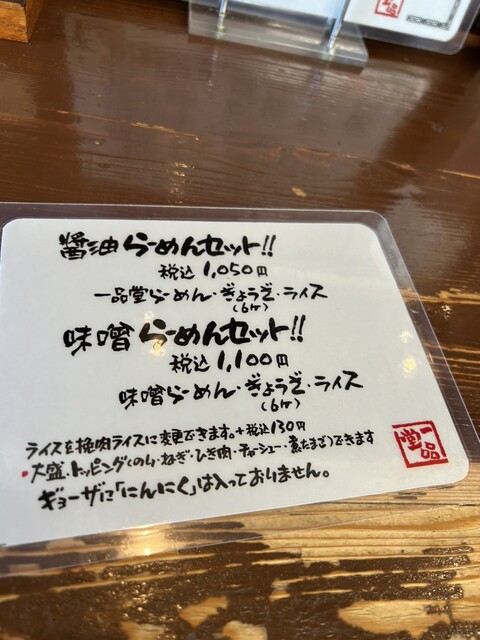 醤油らーめんセット!!
税込1,050円
一品堂らーめん・ぎょうざ・ライス
(6ヶ)
味噌らーめんセット!!
税込1,100円
味噌らーめん・ぎょうざ・ライス
(6ヶ)
ライスを挽肉ライスに変更できます。+税込130円
・大盛、トッピング(のり・ねぎ・ひき肉・チャーシュー・煮たまご)できます
ギョーザに「にんにく」は入っておりません。
一品堂